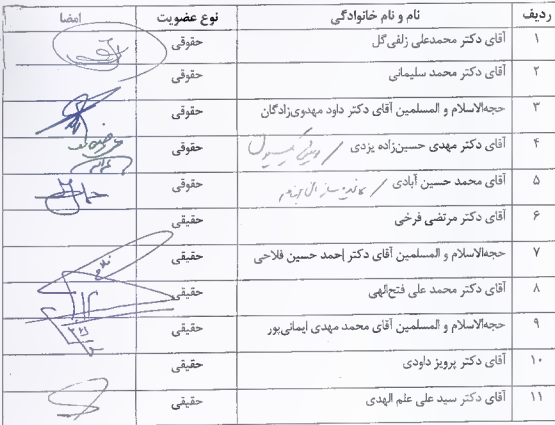 ردیف نام و نام خانوادگی نوع عضویت امضا
۱ آقای دکتر محمدعلی زلفی‌گل حقوقی
۲ آقای دکتر محمد سلیمانی حقوقی
۳ حجه‌الاسلام و المسلمین آقای دکتر داود مهدوی‌زادگان حقوقی
۴ آقای دکتر مهدی حسین‌زاده یزدی حقوقی
۵ آقای محمد حسین آبادی حقوقی
۶ آقای دکتر مرتضی فرخی حقیقی
۷ حجه‌الاسلام و المسلمین آقای دکتر احمد حسین فلاحی حقیقی
۸ آقای دکتر محمد علی فتح‌الهی حقیقی
۹ حجه‌الاسلام و المسلمین آقای محمد مهدی ایمانی‌پور حقیقی
۱۰ آقای دکتر پرویز داودی حقیقی
۱۱ آقای دکتر سید علی علم الهدی حقیقی